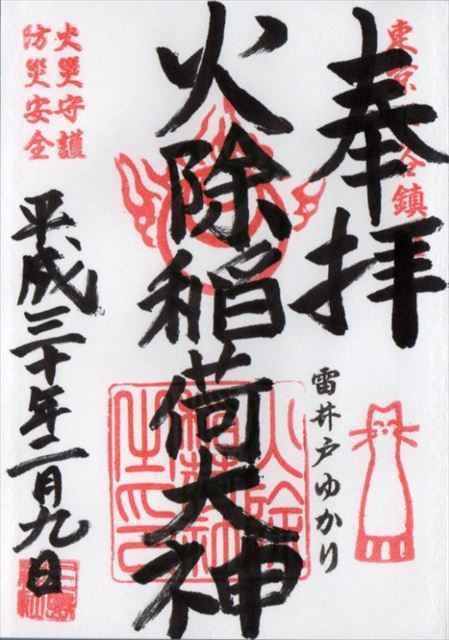 東京
鎮
奉拝
雷井戸ゆかり
火除稲荷大神
火災守護
防災安全
平成三十年二月九日